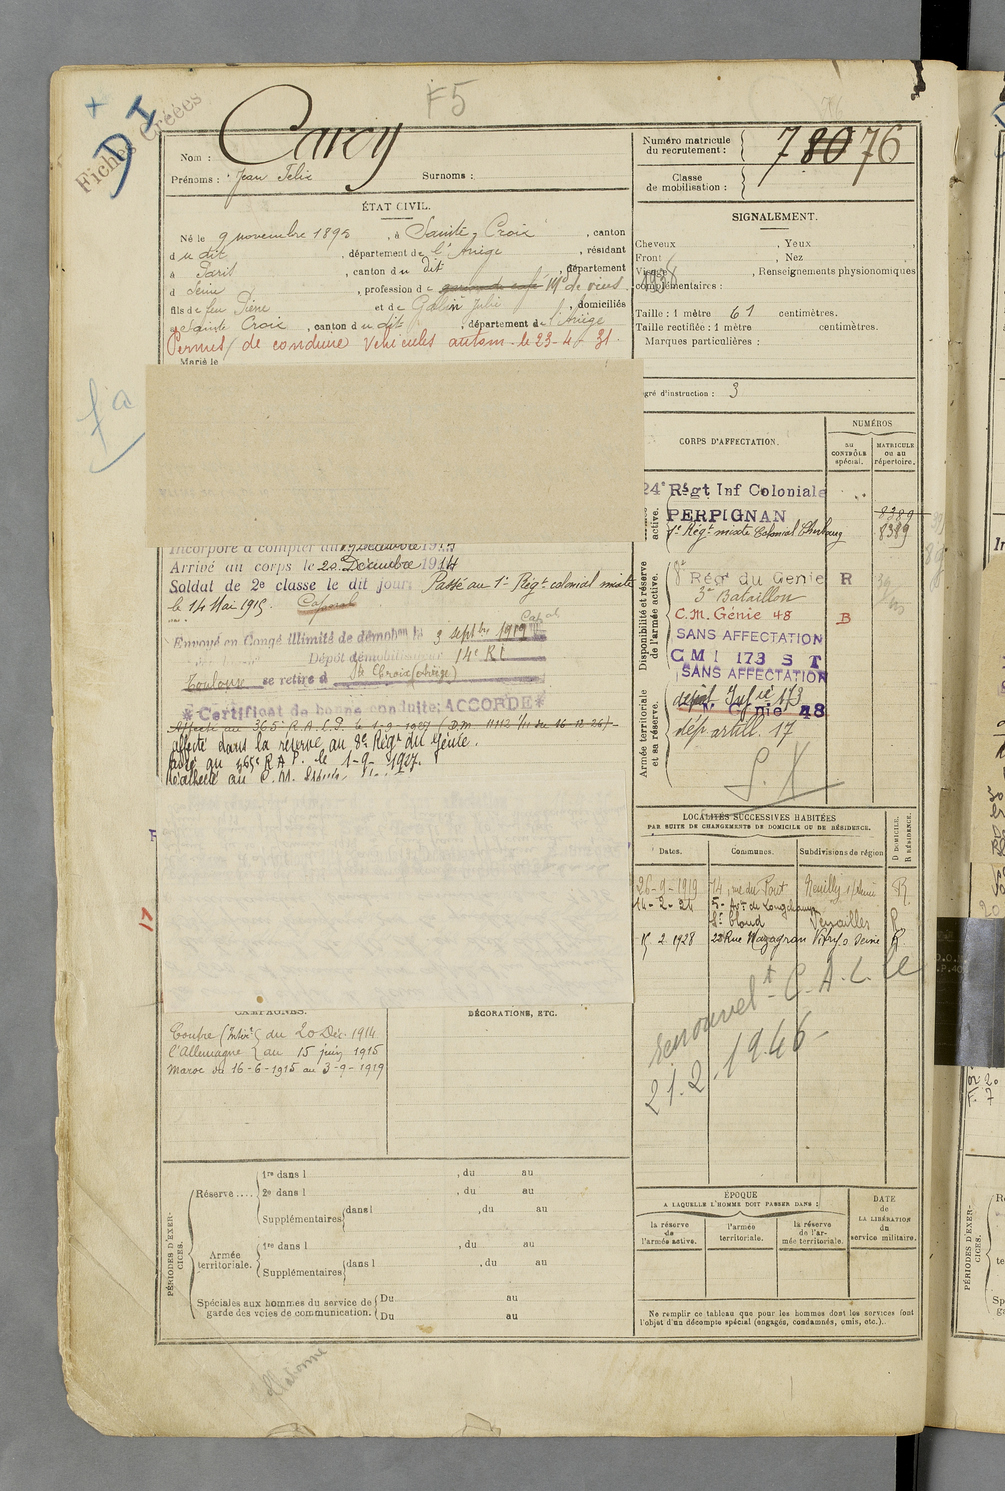 F5
Fiches Créées
D I
Nom : Carcy
Prénoms : Jean Felix Surnoms :
Numéro matricule du recrutement : 7 80 76
Classe de mobilisation :
ÉTAT CIVIL.
Né le 9 novembre 1895, à Sainte Croix, canton
du dit, département de l'Ariège, résidant
à Paris, canton du dit, département
d Seine, profession de garçon de café Md de vins.
fils de feu Pierre et de Galin Julie, domiciliés
à Sainte Croix, canton du dit, département de l'Ariège
Permis de conduire Vehicules autom. le 23-4-31.
Marié le
SIGNALEMENT.
Cheveux , Yeux ,
Front , Nez
Visage , Renseignements physionomiques
complémentaires :
Taille : 1 mètre 61 centimètres.
Taille rectifiée : 1 mètre centimètres.
Marques particulières :
egré d'instruction : 3
fa
CORPS D'AFFECTATION.
NUMÉROS
au CONTRÔLE spécial.
MATRICULE ou au répertoire.
active.
24e Régt Inf Coloniale
PERPIGNAN
8389
1er Régt mixte Colonial Cherbourg 8389
Disponibilité et réserve de l'armée active.
8e Régt du Génie R
3e Bataillon
C.M. Génie 48 B
SANS AFFECTATION
CMI 173 S T
SANS AFFECTATION
Armée territoriale et sa réserve.
dépôt Infie 173
Génie 48
dép artill. 17
Incorporé à compter du 19 Décembre 1914
Arrivé au corps le 20 Décembre 1914
Soldat de 2e classe le dit jour. Passé au 1er Régt colonial mixte
le 14 Mai 1915. Caporal
Envoyé en Congé illimité de démobon le 3 septbre 1919 Capal
Dépôt démobilisateur 14e RI
Toulouse se retire à Ste Croix (Ariège)
*Certificat de bonne conduite: ACCORDE*
Affecté au 365e R.A.L.P. le 1-9-1927 (D.M. 11112 1/11 du 16-12-26)
affecté dans la réserve au 8e Régt du Génie.
passé au 365e R A P. le 1-9-1927.
Réaffecté au C.M.
17
LOCALITÉS SUCCESSIVES HABITÉES
PAR SUITE DE CHANGEMENTS DE DOMICILE OU DE RÉSIDENCE.
Dates. Communes. Subdivisions de région D DOMICILE. R RÉSIDENCE.
26-9-1919 14, rue du Pont Neuilly s/Seine R.
14-2-24 5- Avt de Longchamp
St Cloud Versailles R
15 2 1928 22 Rue Mazagran Vitry s Seine R
renouvelt C.A.L. le
21.2.1946
CAMPAGNES. DÉCORATIONS, ETC.
Contre (Intérr) du 20 Déc. 1914
l'Allemagne au 15 juin 1915
Maroc du 16-6-1915 au 3-9-1919
PÉRIODES D'EXERCICES.
Réserve....
1re dans l , du au
2e dans l , du au
Supplémentaires dans l , du au
Armée territoriale.
1re dans l , du au
Supplémentaires dans l , du au
Spéciales aux hommes du service de garde des voies de communication.
Du au
Du au
ÉPOQUE
A LAQUELLE L'HOMME DOIT PASSER DANS :
la réserve de l'armée active.
l'armée territoriale.
la réserve de l'armée territoriale.
DATE de LA LIBÉRATION du service militaire.
Ne remplir ce tableau que pour les hommes dont les services font
l'objet d'un décompte spécial (engagés, condamnés, omis, etc.)..